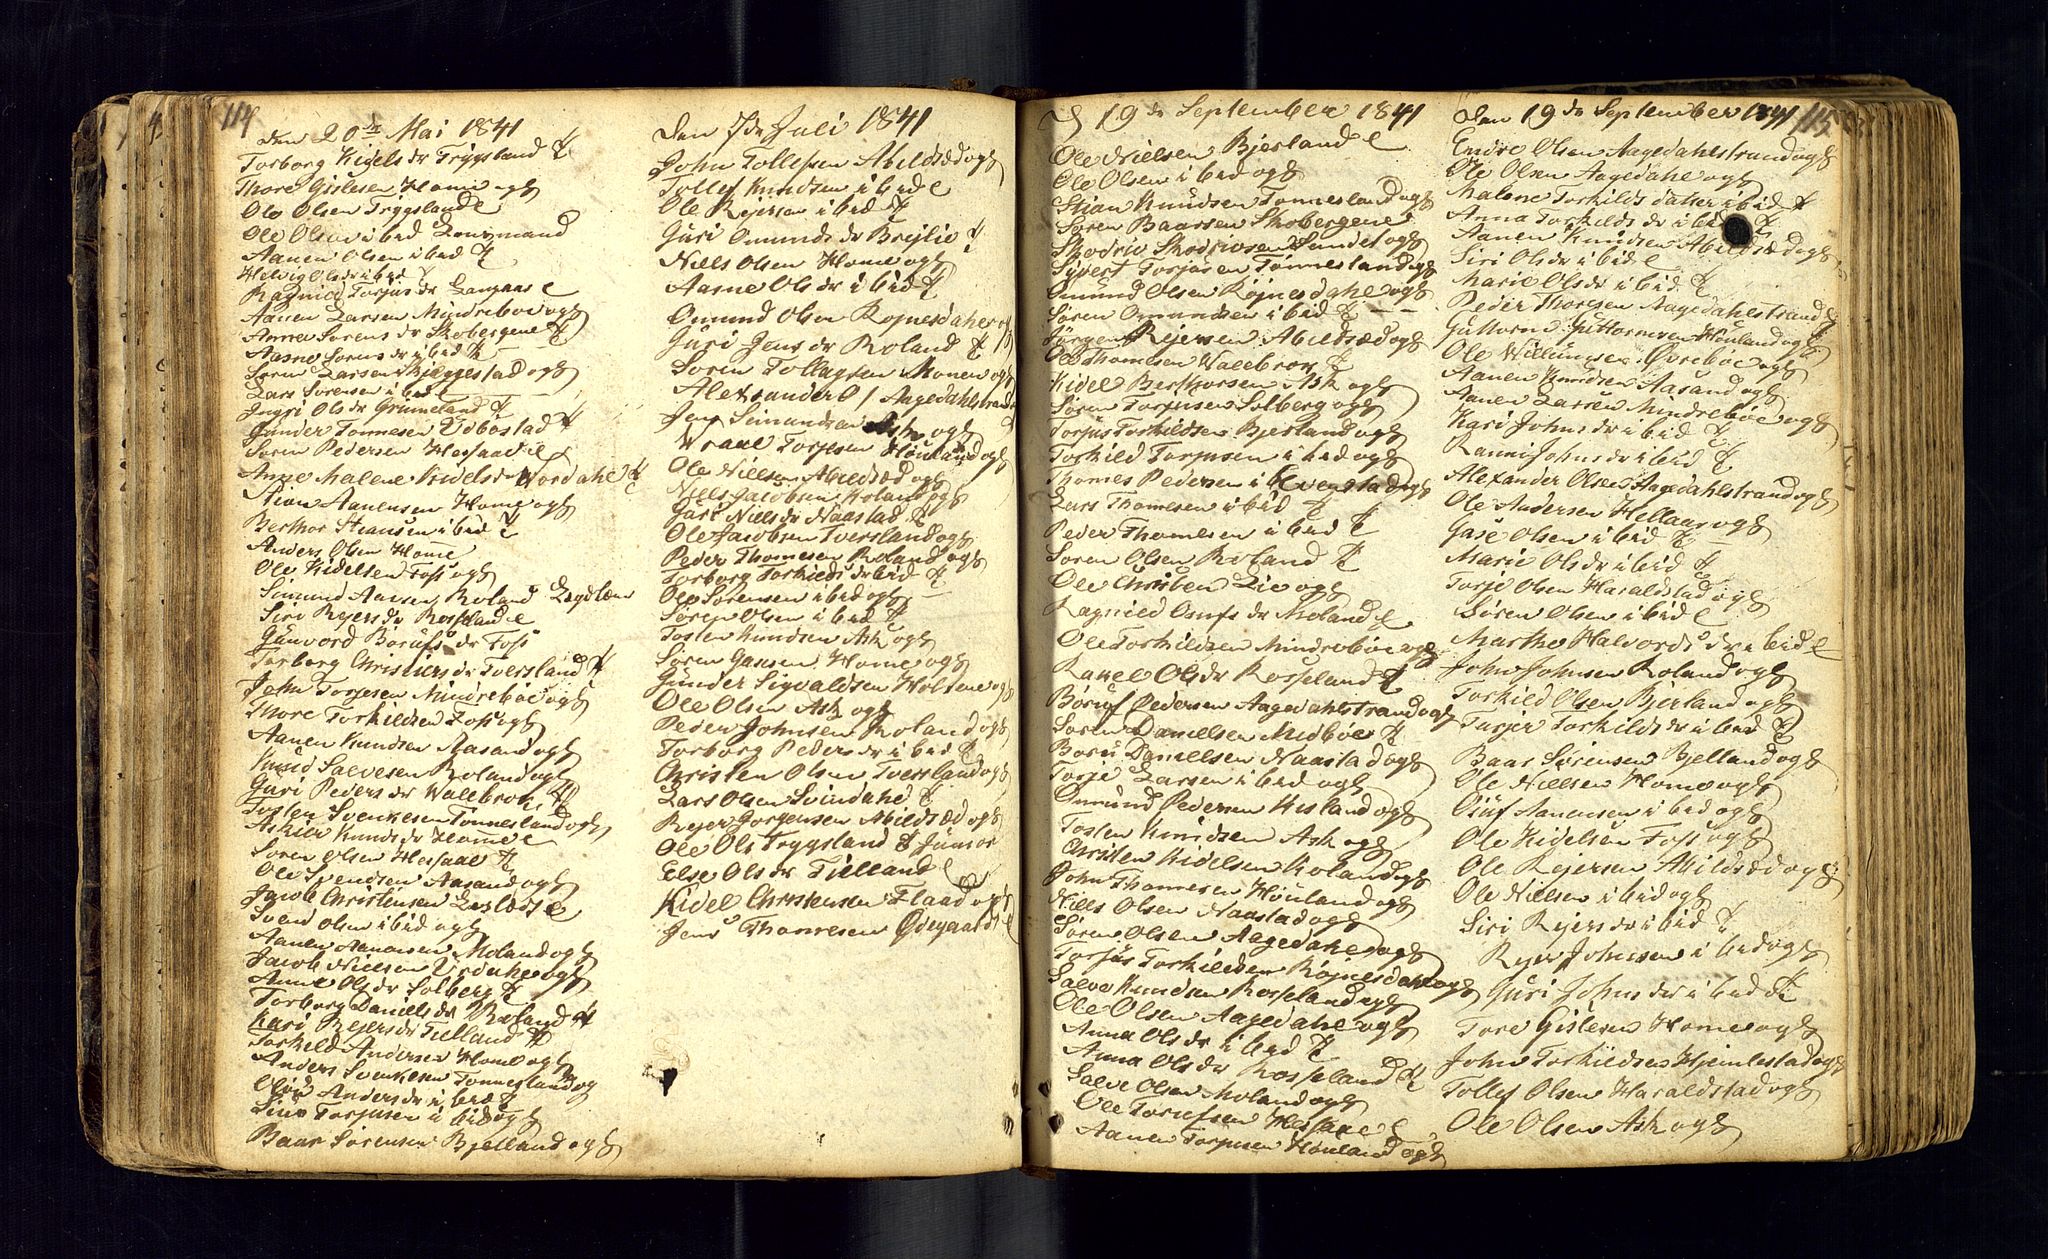 114
den 20de Mai 1841
Torborg Kidelsdr Trygsland
Thore Gislesen Home og
Ole Olsen Trygsland
Ole Olsen ibid Lensmand
Aanen Olsen ibid
Helvig Olsdr ibid
Ragnild Torjusdr Langaas
Aanen Larsen Mindreboe og
Anne Sørensdr Skobergene
Aasne Sørensdr ibid
Søren Larsen Bjeggestad og
Lars Sørensen ibid
Ingri Olsdr Grumeland
Gunder Tonnesen Udbostad
Søren Pedersen Hessaae
Anne Malene Kidelsdr Nordahl
Stian Aanensen Home og
Berthor Stiansen ibid
Anders Olsen Home
Ole Kidelsen Foss og
Simund Aansen Roland
Siri Reiersdr Rosseland
Gunvord Børufsdr Foss
Torborg Christensdr Tversland
John Torjesen Mindreboe og
Thore Torkildsen Foss og
Aanen Knudsen Aasand og
Knud Salvesen Roland og
Guri Pedersdr Wallebrok
Tosten Svenkesen Tonnesland og
Asker Knudsdr Home
Søren Olsen Hessaae
Ole Svendsen Aasand og
Jacob Christensen
Svend Olsen ibid og
Aanen Aanensen Moland og
Jacob Nielsen og
Anne Olsdr Solberg
Torborg Danielsdr Roland
Kari Rejersdr Tielland
Torkild Andersen Home og
Anders Svenkesen Tonnesland og
Andersdr ibid
Torjusen ibid og
Baar Sørensen Bjelland og
Den 7de Juli 1841
John Tollefsen Abildsæd og
Tollef Knudsen ibid
Ole Rejersen ibid
Guri Omundsdr Brejlie
Niels Olsen Home og
Aasne Olsdr ibid
Omund Olsen Røjnesdahl og
Guri Jensdr Roland
Søren Tollagsen Monen og
Alexander O/ Aagedahlstrand
Jens Simundsen Ask og
Torjesen Houland og
Ole Nielsen Abildsæd og
Niels Jacobsen Roland og
Gase Nielsdr Naastad
Ole Jacobsen Tversland og
Peder Thomesen Roland og
Torborg Torkildsdr ibid
Ole Sørensen ibid og
Søren Olsen ibid
Tosten Knudsen Ask og
Søren Gasesen Home og
Gunder Sigvaldsen Holtene og
Ole Olsen Ask og
Peder Johnsen Roland og
Torborg Pedersdr ibid
Christen Olsen Tversland og
Lars Olsen Svindahl
Rejer Jorgensen Abildsæd og
Ole Ols Trygsland Junior
Else Olsdr Tielland
Kidel Christensen Flaad og
Jens Thomesen Ødegaard
D 19de September 1841
Ole Nielsen Bjerland
Ole Olsen ibid og
Stian Knudsen Tonnesland og
Søren Baarsen Skobergene
Skodric Skodricsen Sundet og
Syvert Torjusen Tonnesland og
Omund Olsen Røjnesdahl og
Søren Omundsen ibid
Jørgen Rejersen Abildsæd og
Ole Thomesen Wallebrok
Kidel Berthorsen Ask og
Søren Torjusen Solberg og
Torjus Torkildsen Bjerland og
Torkild Torjusen ibid og
Thomes Pedersen i Evenstad og
Lars Thomesen ibid
Peder Thomesen ibid
Søren Olsen Roland
Ole Christen Lie og
Ragnild Osufsdr Moland
Ole Torkildsen Mindreboe og
Rakel Olsdr Rosseland
Børuf Pedersen Aagedahlstrand og
Søren Danielsen Midboe
Børu Danielsen Naastad og
Torje Larsen ibid og
Omund Pedersen Hesland og
Tosten Knudsen Ask og
Christen Kidelsen Roland og
John Thomesen Houland og
Niels Olsen Naastad og
Søren Olsen Aagedahl og
Torjus Torkildsen Røjnesdahl og
Salve Knudsen Rosseland og
Ole Olsen Aagedahl og
Anna Olsdr ibid
Anna Olsdr Rosseland
Salve Olsen Moland og
Ole Torjefsen Hessaae
Aanen Torjusen Houland og
Den 19de September 1841
115
Endre Olsen Aagedahlstrand og
Ole Olsen Aagedahl og
Malene Torkilds datter ibid
Anna Torkildsdr ibid
Aanen Knudsen Abildsæd og
Siri Olsdr ibid
Marie Olsdr ibid
Peder Thoresen Aagedahlstrand
Guttorm Guttormsen Houland og
Ole Willumsen Øvreboe og
Aanen Knudsen Aasand og
Aanen Larsen Mindreboe og
Kari Johnsdr ibid
Ranni Johnsdr ibid
Alexander Olsen Aagedahlstrand og
Ole Andersen Hellaas og
Gase Olsen ibid
Marie Olsdr ibid
Torje Olsen Haraldstad og
Søren Olsen ibid
Marthe Halvordsdr ibid
John Johnsen Roland og
Torkild Olsen Bjerland og
Torkildsdr ibid
Baar Sørensen Bjelland og
Ole Nielsen Home og
Oluf Aanensen ibid og
Ole Kidelsen Foss og
Ole Rejersen Abildsæd og
Ole Nielsen ibid og
Siri Rejersdr ibid
Rejer Johnsen ibid og
Guri Johnsdr ibid
Tore Gislesen Home og
John Torkildsen Hjemlestad og
Tollef Olsen Haraldstad og
Ole Olsen Ask og